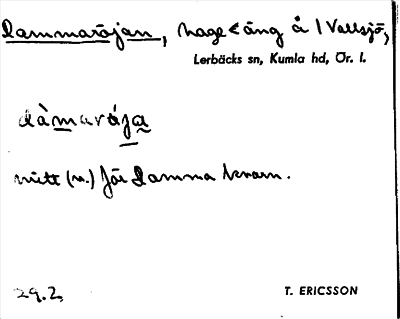 Dammaröjan, hage < äng å 1 Vallsjö,
Lerbäcks sn, Kumla hd, Ör. l.
mitt (n.) för Damma kvarn.
29.2.
T. ERICSSON